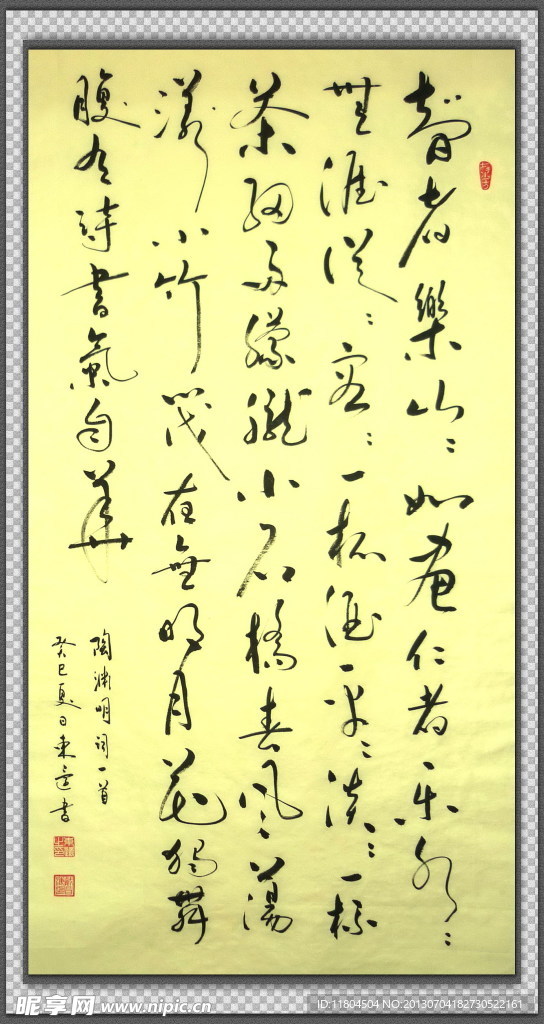 智者樂山〻如畫仁者乐水〻
無涯從〻容〻一杯酒平〻淡〻一杯
茶細雨朦朧小石橋春風蕩
漾小竹筏夜無明月花獨舞
腹有詩書氣自華
陶渊明词一首
癸巳夏日東書
昵享网 www.nipic.cn
ID:11804504 NO:20130704182730522161